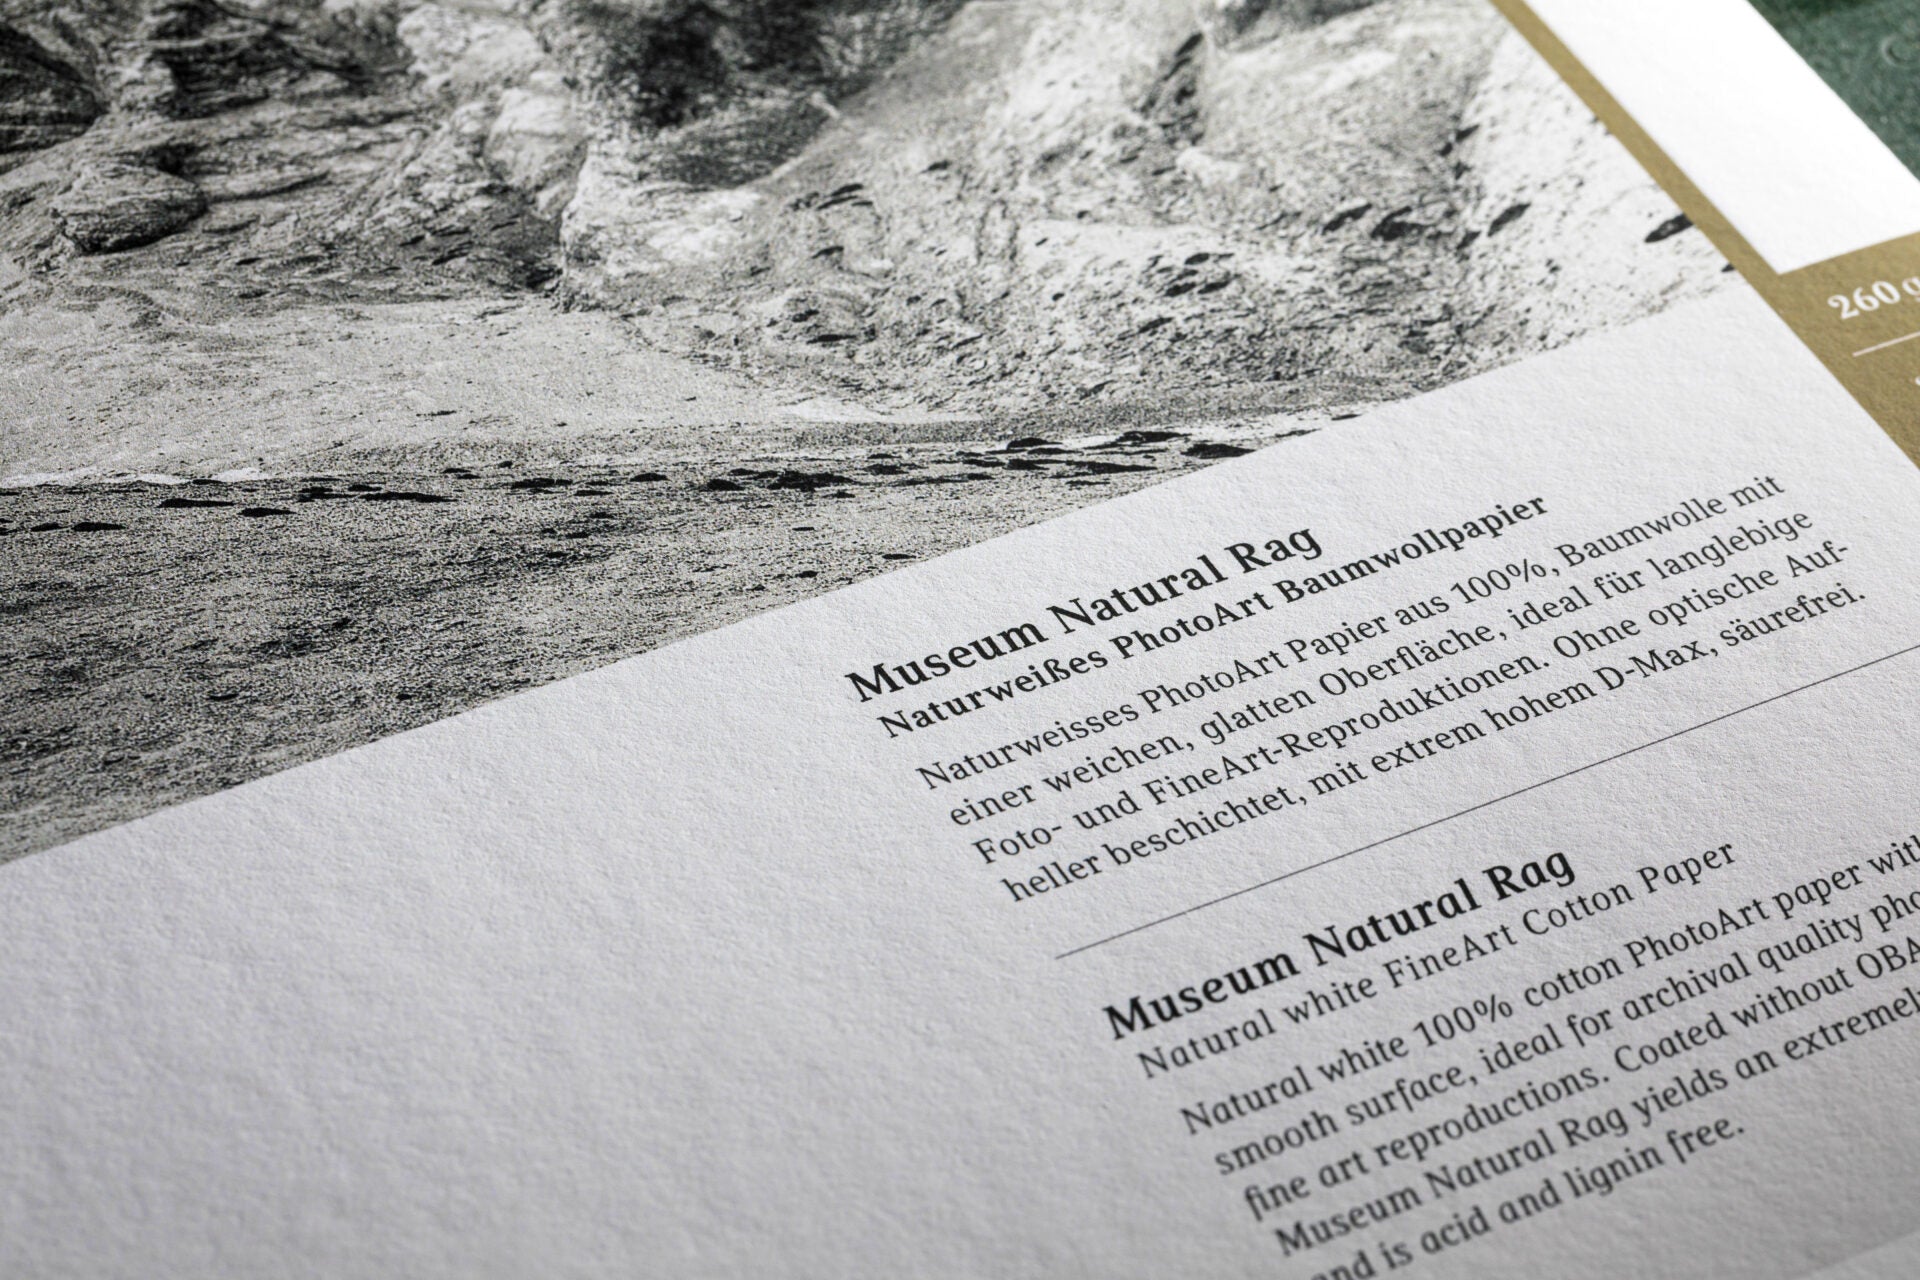 Museum Natural Rag
Naturweißes PhotoArt Baumwollpapier
Naturweisses PhotoArt Papier aus 100%, Baumwolle mit
einer weichen, glatten Oberfläche, ideal für langlebige
Foto- und FineArt-Reproduktionen. Ohne optische Auf-
heller beschichtet, mit extrem hohem D-Max, säurefrei.
Museum Natural Rag
Natural white FineArt Cotton Paper
Natural white 100% cotton PhotoArt paper with
smooth surface, ideal for archival quality pho
fine art reproductions. Coated without OBA
Museum Natural Rag yields an extremel
and is acid and lignin free.
260 g